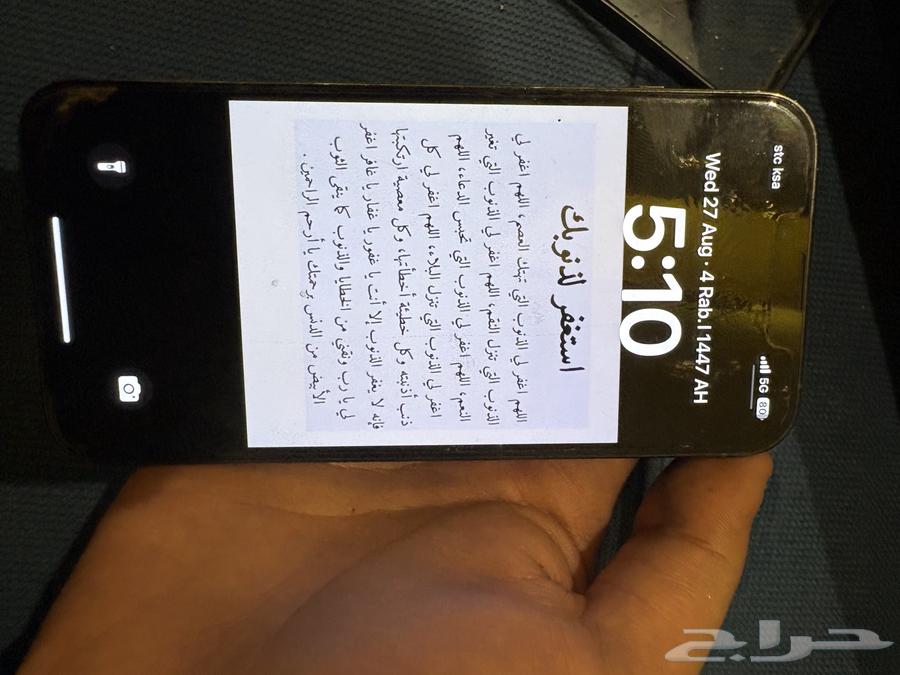 stc ksa
5G 80
Wed 27 Aug · 4 Rab. I 1447 AH
5:10
استغفر لذنوبك
اللهم اغفر لي الذنوب التي تهتك العصم، اللهم اغفر لي
الذنوب التي تنزل النقم، اللهم اغفر لي الذنوب التي تغير
النعم، اللهم اغفر لي الذنوب التي تحبس الدعاء، اللهم
اغفر لي الذنوب التي تنزل البلاء، اللهم اغفر لي كل
ذنب أذنبته وكل خطيئة أخطأتها، وكل معصية ارتكبتها
فإنه لا يغفر الذنوب إلا أنت يا غفور يا غفار يا غافر إغفر
لي يا رب ونقني من الخطايا والذنوب كما ينقى الثوب
الأبيض من الدنس برحمتك يا أرحم الراحمين.
حراج